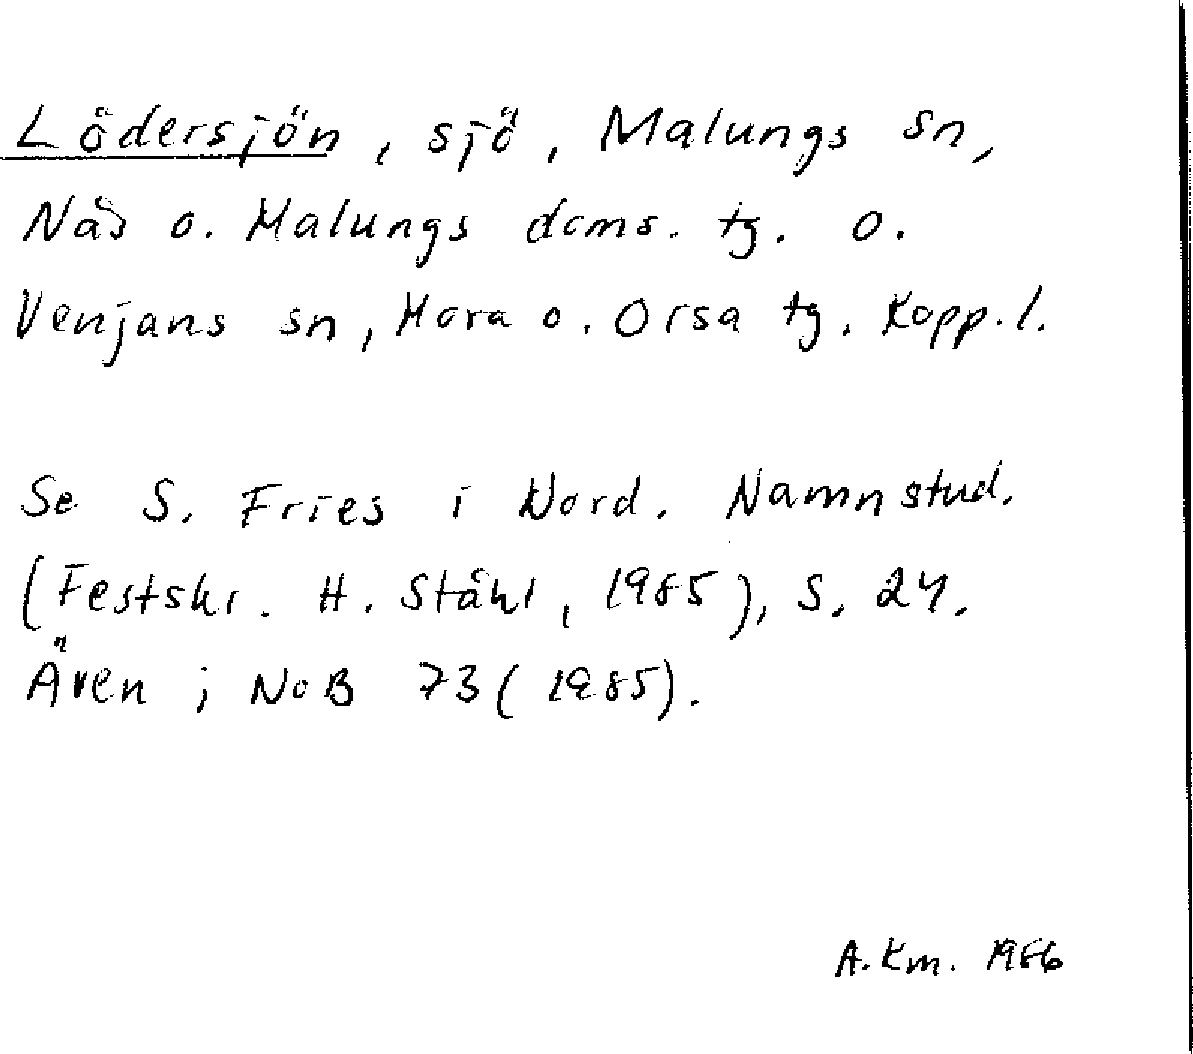 Lödersjön, sjö, Malungs sn,
Nås o. Malungs doms. tg. o.
Venjans sn, Mora o. Orsa tg. Kopp. l.
Se S. Fries i Nord. Namnstud.
(Festskr. H. Ståhl, 1985), s. 24.
Även i NoB 73 (1985).
A. Km. 1986